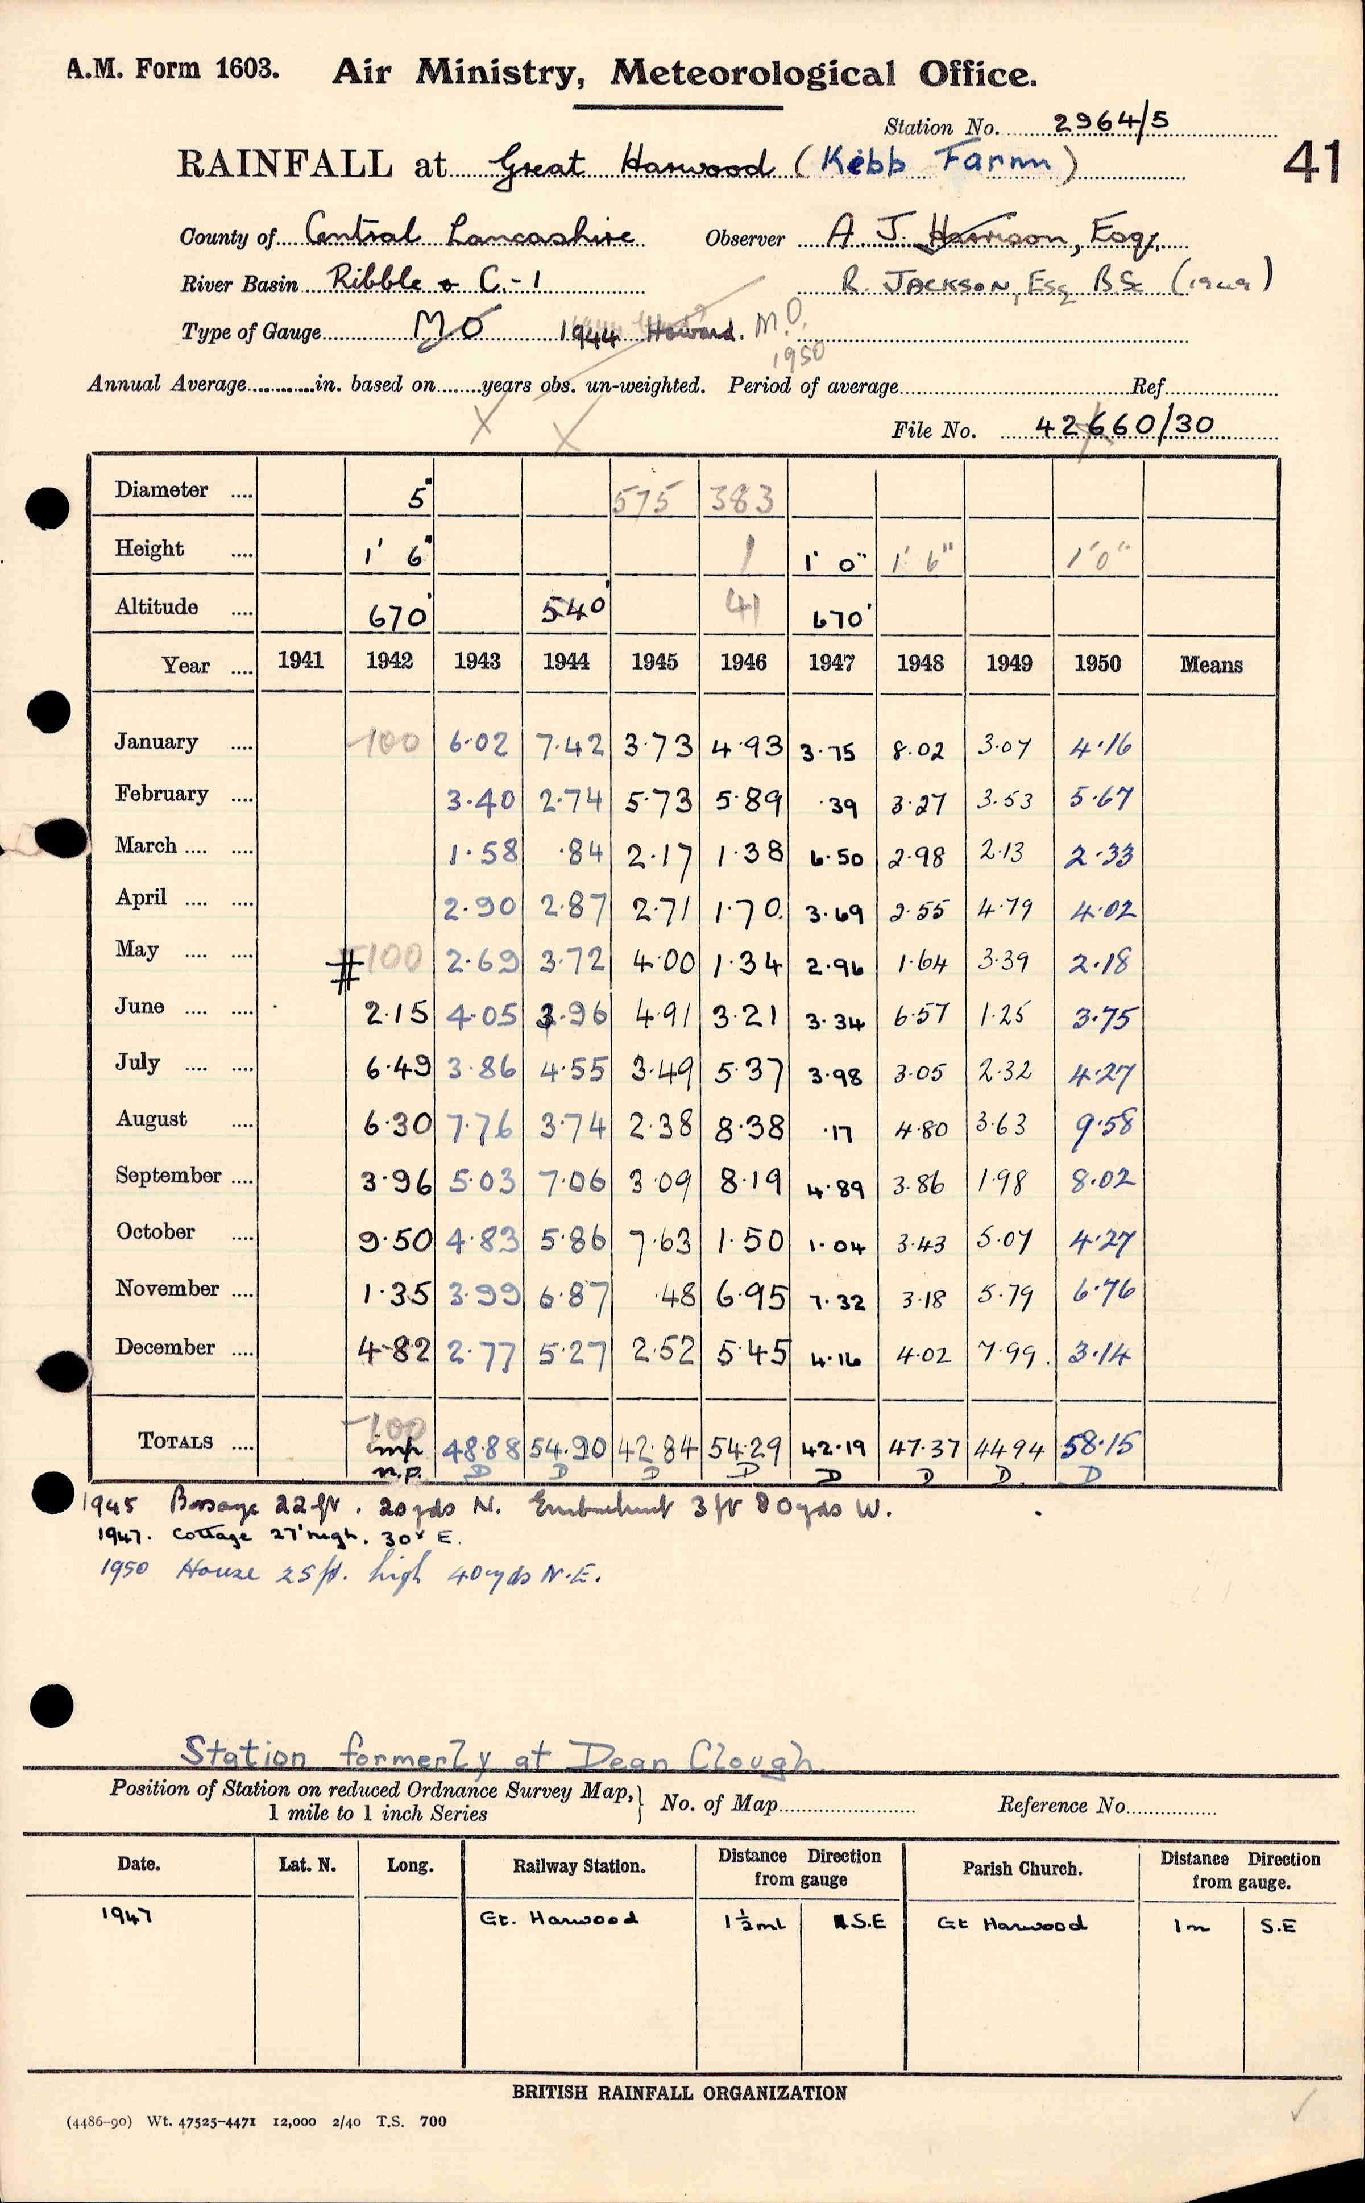 A.M. Form 1603. Air Ministry, Meteorological Office.
Station No. 2964/5
RAINFALL at Great Harwood (Kibb Farm) 41
County of Central Lancashire Observer A J. Harrison, Esq.
River Basin Ribble & C.-1 R. JACKSON, Esq B.Sc (1949)
Type of Gauge MO 1944 Howard. M.O.
1950
Annual Average in. based on years obs. un-weighted. Period of average Ref
File No. 42660/30
Diameter 5" 575 383
Height 1' 6" 1 1' 0" 1' 6" 1'0"
Altitude 670' 540' 41 670'
Year 1941 1942 1943 1944 1945 1946 1947 1948 1949 1950 Means
January -100 6.02 7.42 3.73 4.93 3.75 8.02 3.07 4.16
February 3.40 2.74 5.73 5.89 .39 3.27 3.53 5.67
March 1.58 .84 2.17 1.38 6.50 2.98 2.13 2.33
April 2.90 2.87 2.71 1.70 3.69 2.55 4.79 4.02
May # -100 2.69 3.72 4.00 1.34 2.96 1.64 3.39 2.18
June 2.15 4.05 3.96 4.91 3.21 3.34 6.57 1.25 3.75
July 6.49 3.86 4.55 3.49 5.37 3.98 3.05 2.32 4.27
August 6.30 7.76 3.74 2.38 8.38 .17 4.80 3.63 9.58
September 3.96 5.03 7.06 3.09 8.19 4.89 3.86 1.98 8.02
October 9.50 4.83 5.86 7.63 1.50 1.04 3.43 5.07 4.27
November 1.35 3.99 6.87 .48 6.95 7.32 3.18 5.79 6.76
December 4.82 2.77 5.27 2.52 5.45 4.16 4.02 7.99 3.14
-100
TOTALS imp 48.88 54.90 42.84 54.29 42.19 47.37 44.94 58.15
n.p. D D D D D D D D
1945 22 ft. 20 yds N. Embankment 3 ft 80 yds W.
1947. Cottage 27' high. 30y E.
1950 House 25 ft. high 40 yds N.E.
Station formerly at Dean Clough
Position of Station on reduced Ordnance Survey Map, } No. of Map Reference No.
1 mile to 1 inch Series
Date. Lat. N. Long. Railway Station. Distance Direction from gauge Parish Church. Distance Direction from gauge.
1947 Gt. Harwood 1½ml S.E Gt Harwood 1m S.E
BRITISH RAINFALL ORGANIZATION
(4486-90) Wt. 47525-4471 12,000 2/40 T.S. 700